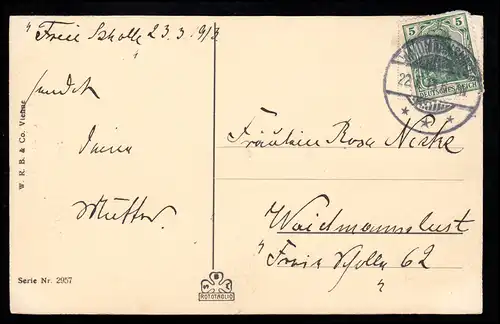 "Freie Scholle 23.3.913
sendet
Deine
Mutter.
Fräulein Rosa
Waidmannslust
"Freie Scholle 62
"
5 5
DEUTSCHES REICH
22.
* * *
W. R. B. & Co. Vienne
Serie Nr. 2957
S B M
ROTOTHOLIO